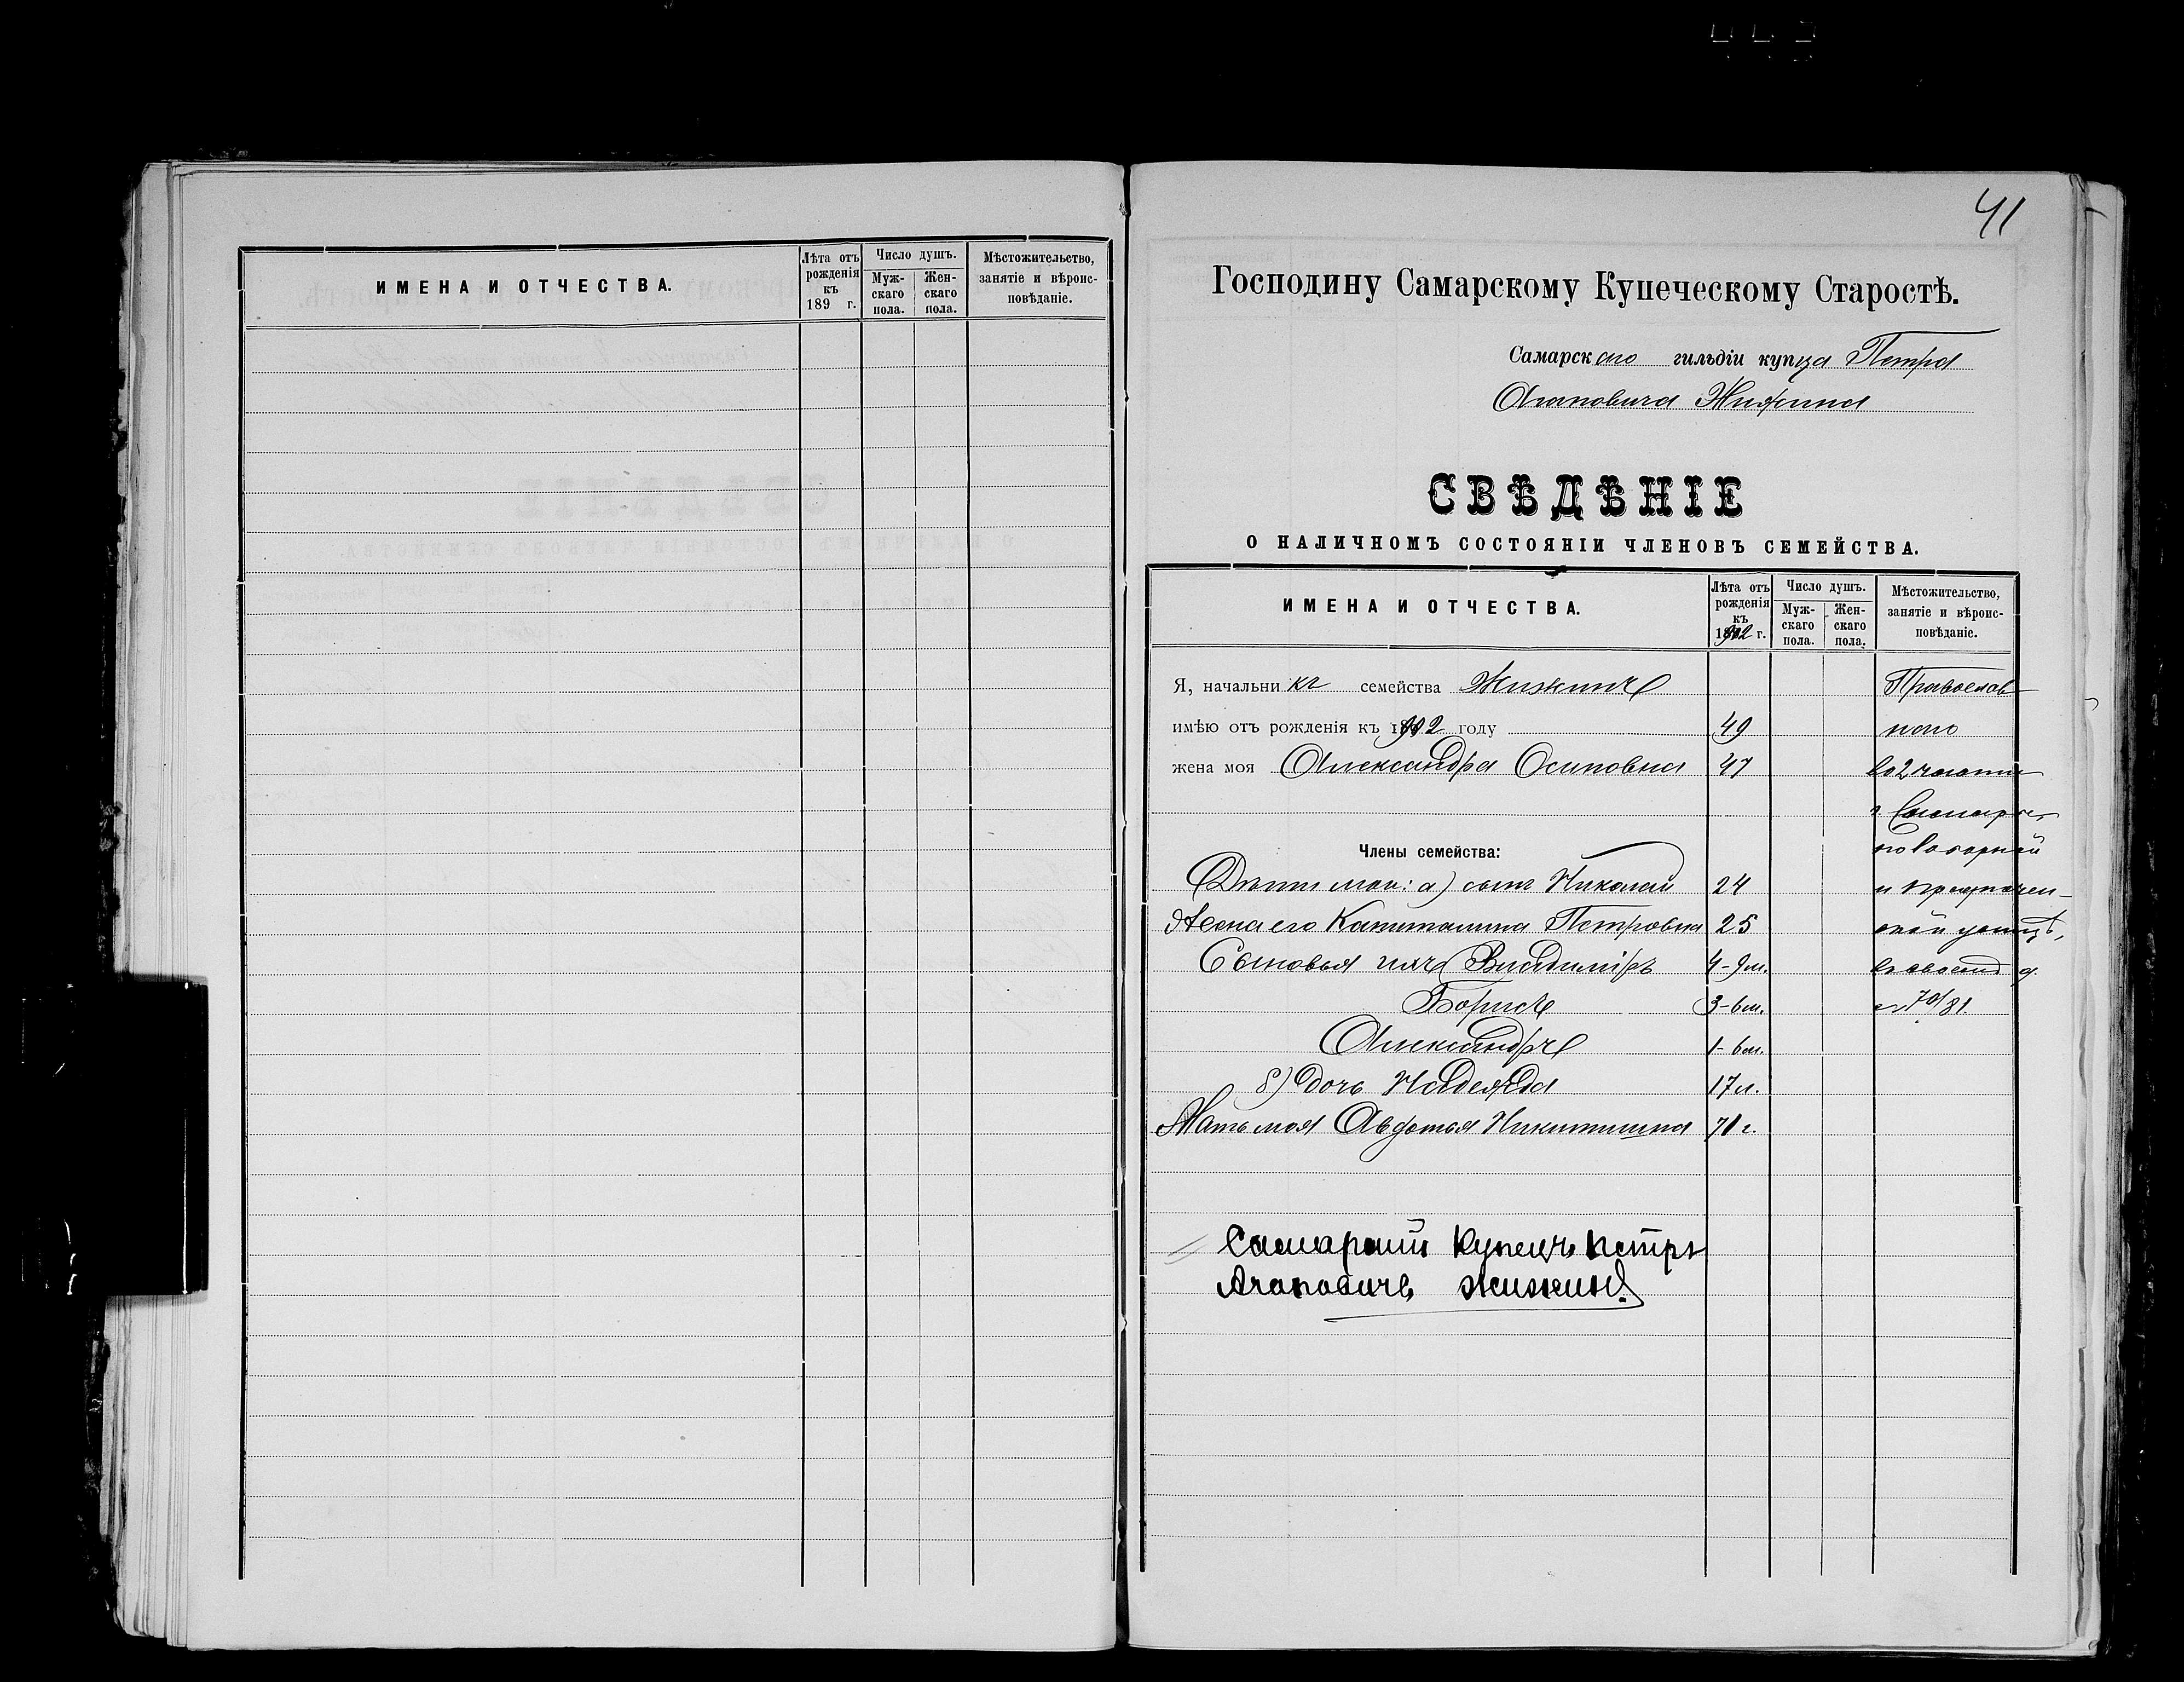 ИМЕНА И ОТЧЕСТВА.
Лѣта отъ рожденія къ 189 г.
Число душъ.
Мужскаго пола.
Женскаго пола.
Мѣстожительство, занятіе и вѣроисповѣданіе.
41
Господину Самарскому Купеческому Старостѣ.
Самарскаго гильдіи купца Петра
Агаповича Жижина
СВѢДѢНІЕ
О НАЛИЧНОМЪ СОСТОЯНІИ ЧЛЕНОВЪ СЕМЕЙСТВА.
ИМЕНА И ОТЧЕСТВА.
Лѣта отъ рожденія къ 1902 г.
Число душъ.
Мужскаго пола.
Женскаго пола.
Мѣстожительство, занятіе и вѣроисповѣданіе.
Я, начальникъ семейства Жижинъ Православ-
имѣю отъ рожденія къ 1902 году 49 наго
жена моя Александра Осиповна 47 во 2 части
г. Самары,
Члены семейства: по Соборной
Дѣти мои: а) сынъ Николай 24 и
Жена его Капиталина Петровна 25 ской улицъ,
Сыновья ихъ Владиміръ 4-9 м. въ своемъ д.
Борисъ 3-6 м. № 70/81.
Александръ 1-6 м.
б) дочь Надежда 17 л.
Мать моя Авдотья Никитишна 71 г.
Самарский Купецъ Петръ
Агаповичъ Жижинъ.